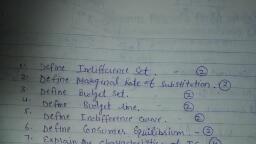 1. Define Indifference Set. - ②
2. Define Marginal Rate of Substitution. ②
3. Define Budget Set. ②
4. Define Budget line. ②
5. Define Indifference curve. ②
6. Define Consumer Equilibrium - ②
7. Explain characteristics of IC